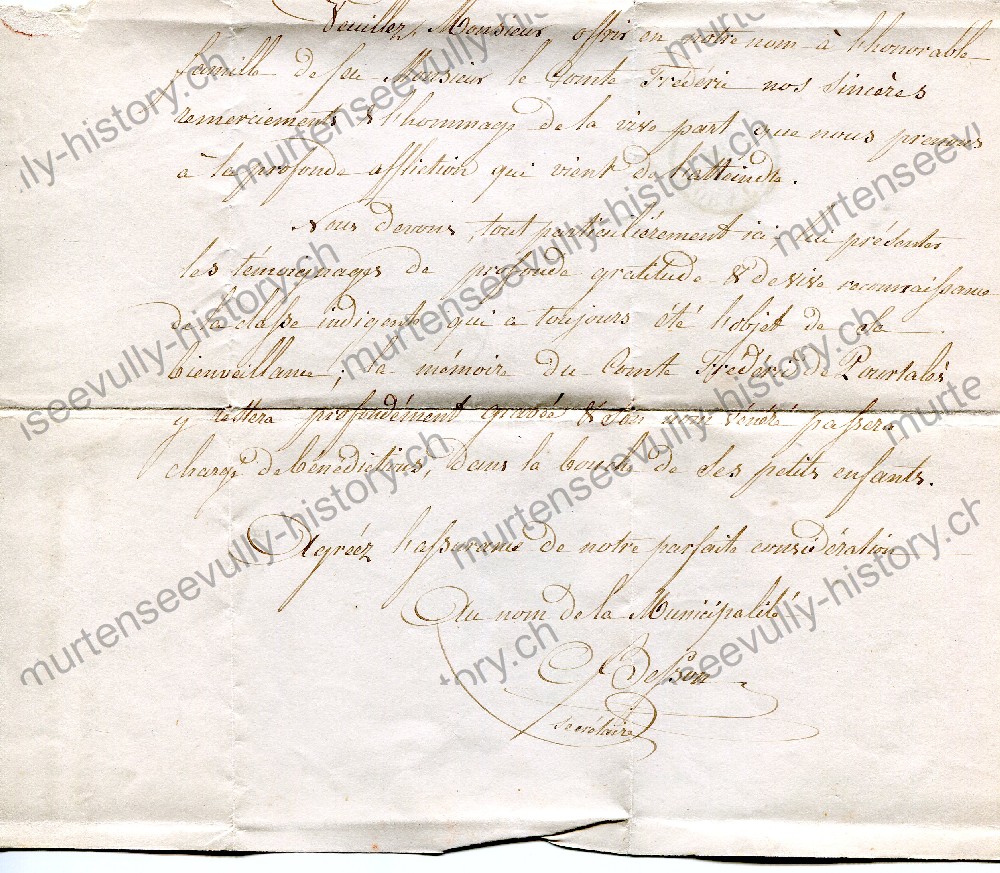 Veuillez, Monsieur offrir en notre nom à l'honorable
famille de feu Monsieur le Comte Frédéric nos sincères
remerciements & l'hommage de la vive part que nous prenons
à la profonde affliction qui vient de l'atteindre.
Nous devons, tout particulièrement ici, lui présenter
les témoignages de profonde gratitude & de vive reconnaissance
de la classe indigente qui a toujours été l'objet de sa
bienveillance; la mémoire du Comte Frédéric de Pourtalès
y restera profondément gravée & son nom vénéré passera
chargé de bénédictions, dans la bouche de ses petits enfants.
Agréez l'assurance de notre parfaite considération
Au nom de la Municipalité
Besson
secrétaire
murtenseevully-history.ch